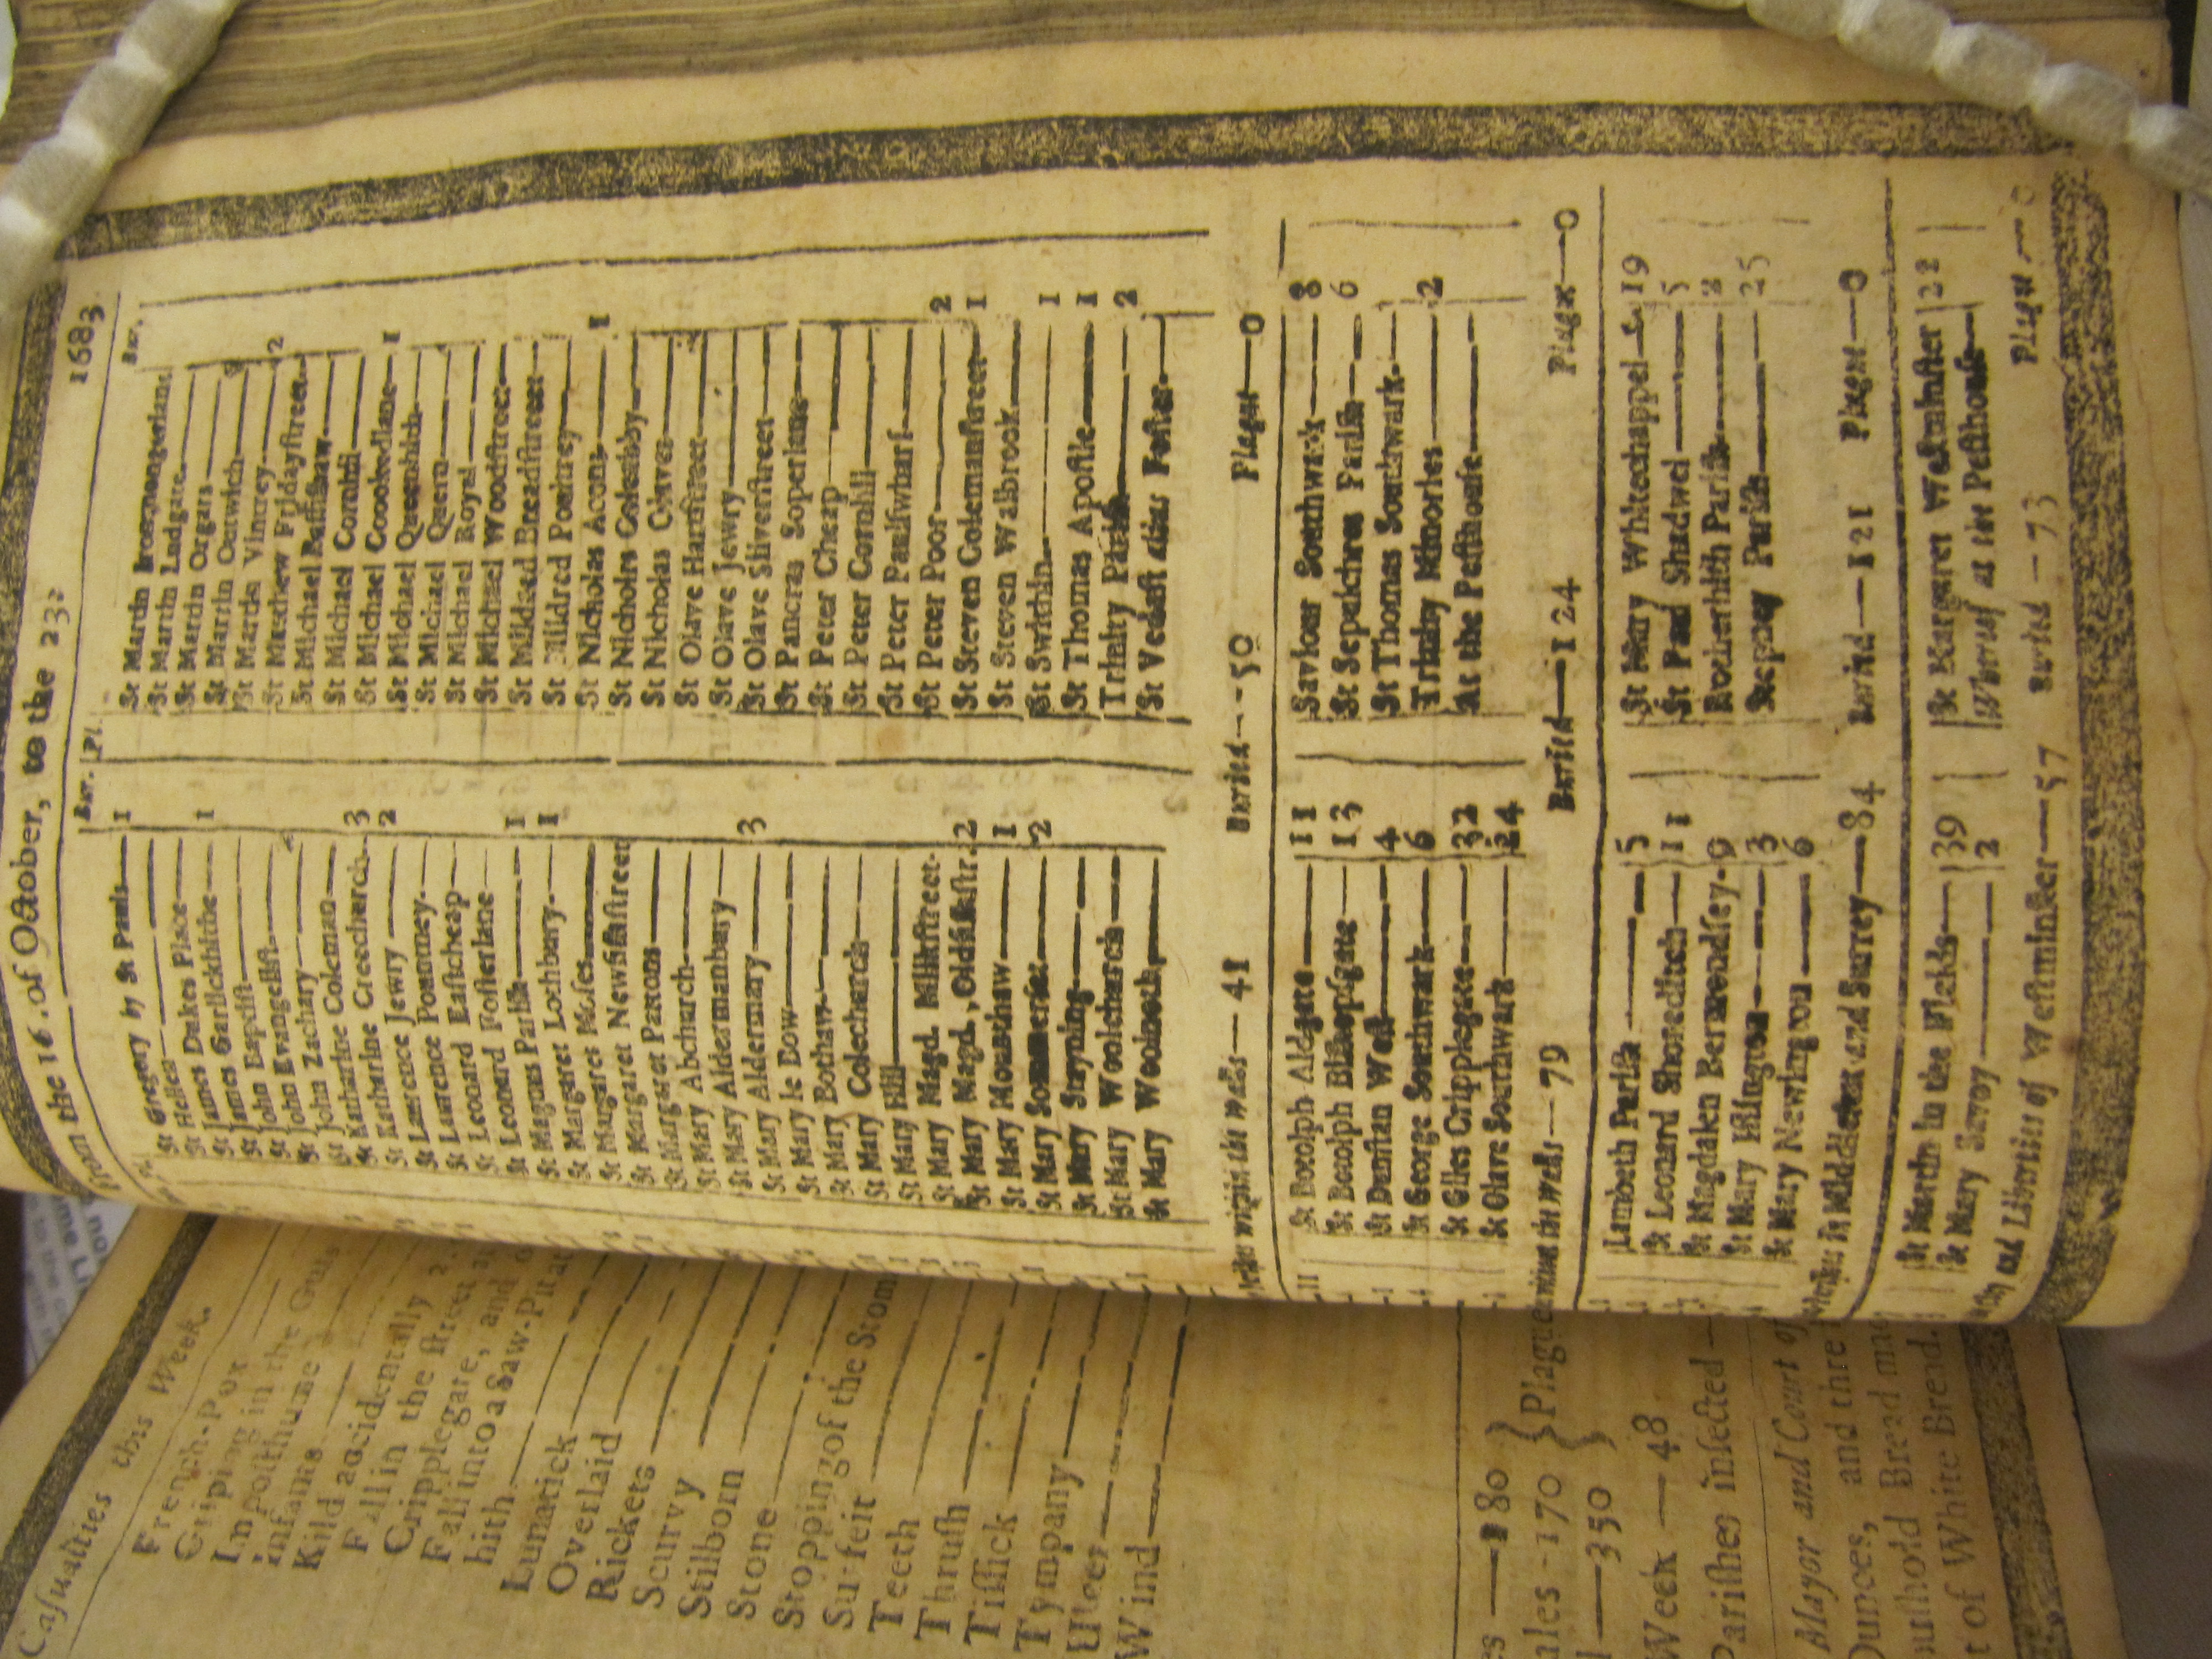 From the 16. of October, to the 23: 1683
Bur. Pl.
St Gregory by St Pauls—1
St Hellen—
St James Dukes Place—
St James Garlickhithe—1
St John Baptist—
St John Evangelist—
St John Zachary—
St Katharine Coleman—
St Katharine Creechurch—3
St Lawrence Jewry—2
St Lawrence Pountney—
St Leonard Eastcheap—
St Leonard Fosterlane—
St Magnus Parish—1
St Margaret Lothbury—1
St Margaret Moses—
St Margaret Newfishstreet
St Margaret Pattons—
St Mary Abchurch—
St Mary Aldermanbury—
St Mary Aldermary—3
St Mary le Bow—
St Mary Bothaw—
St Mary Colechurch—
St Mary Hill—
St Mary Magd. Milkstreet-
St Mary Magd. Oldfishstr. 2
St Mary Mounthaw—1
St Mary Sommerset—2
St Mary Stayning—
St Mary Woolchurch—
St Mary Woolnoth—
Bur.
St Martin Iremongerlane
St Martin Ludgate—
St Martin Organs—
St Martin Outwich—
St Martin Vintrey—
St Matthew Fridaystreet—2
St Michael Bassishaw—
St Michael Cornhil—
St Michael Crookedlane—1
St Michael Queenhith—
St Michael Quern—
St Michael Royal—
St Michael Woodstreet—
St Mildred Breadstreet—
St Mildred Poultrey—
St Nicholas Acons—1
St Nicholas Coleabby—
St Nicholas Olaves—
St Olave Hartstreet—
St Olave Jewry—
St Olave Silverstreet—
St Pancras Soperlane—
St Peter Cheap—
St Peter Cornhil—
St Peter Paulswharf—
St Peter Poor—2
St Steven Colemanstreet—1
St Steven Walbrook—
St Swithin—1
St Thomas Apostle—1
Trinity Parish—2
St Vedast alias Foster—
within the walls—41 Buried—50 Plague—0
St Botolph Aldgate—11
St Botolph Bishopsgate—13
St Dunstan West—4
St George Southwark—6
St Giles Cripplegate—32
St Olave Southwark—24
Saviour Southwark—8
St Sepulchres Parish—6
St Thomas Southwark—
Trinity Minories—2
At the Pesthouse—
without the walls—79 Buried—124 Plague—0
Lambeth Parish—5
St Leonard Shoreditch—11
St Magdalen Bermondsey-9
St Mary Islington—3
St Mary Newington—6
St Mary Whitechappel—19
St Paul Shadwel—5
Rotherhith Parish—2
Stepney Parish—25
in Middlesex and Surrey—84 Buried—121 Plague—0
St Martin in the Fields—39
St Mary Savoy—2
St Margaret Westminster 22
Whereof at the Pesthouse—
City and Liberties of Westminster—57 Buried—73 Plague—0
Casualties this Week.
French-Pox
Griping in the Guts
Imposthume
infants
Kild accidentally 2.
Fall in the street
Cripplegate, and
Fall into a Saw-Pit
hith
Lunatick
Overlaid
Rickets
Scurvy
Stilborn
Stone
Stopping of the Stom
Surfeit
Teeth
Thrush
Tissick
Tympany
Ulcer
Wind
es—180
ales-170 } Plague
l—350
Week—48
Parishes infected—
Mayor and Court of
Ounces, and thre
outhold Bread ma
t of White Bread.